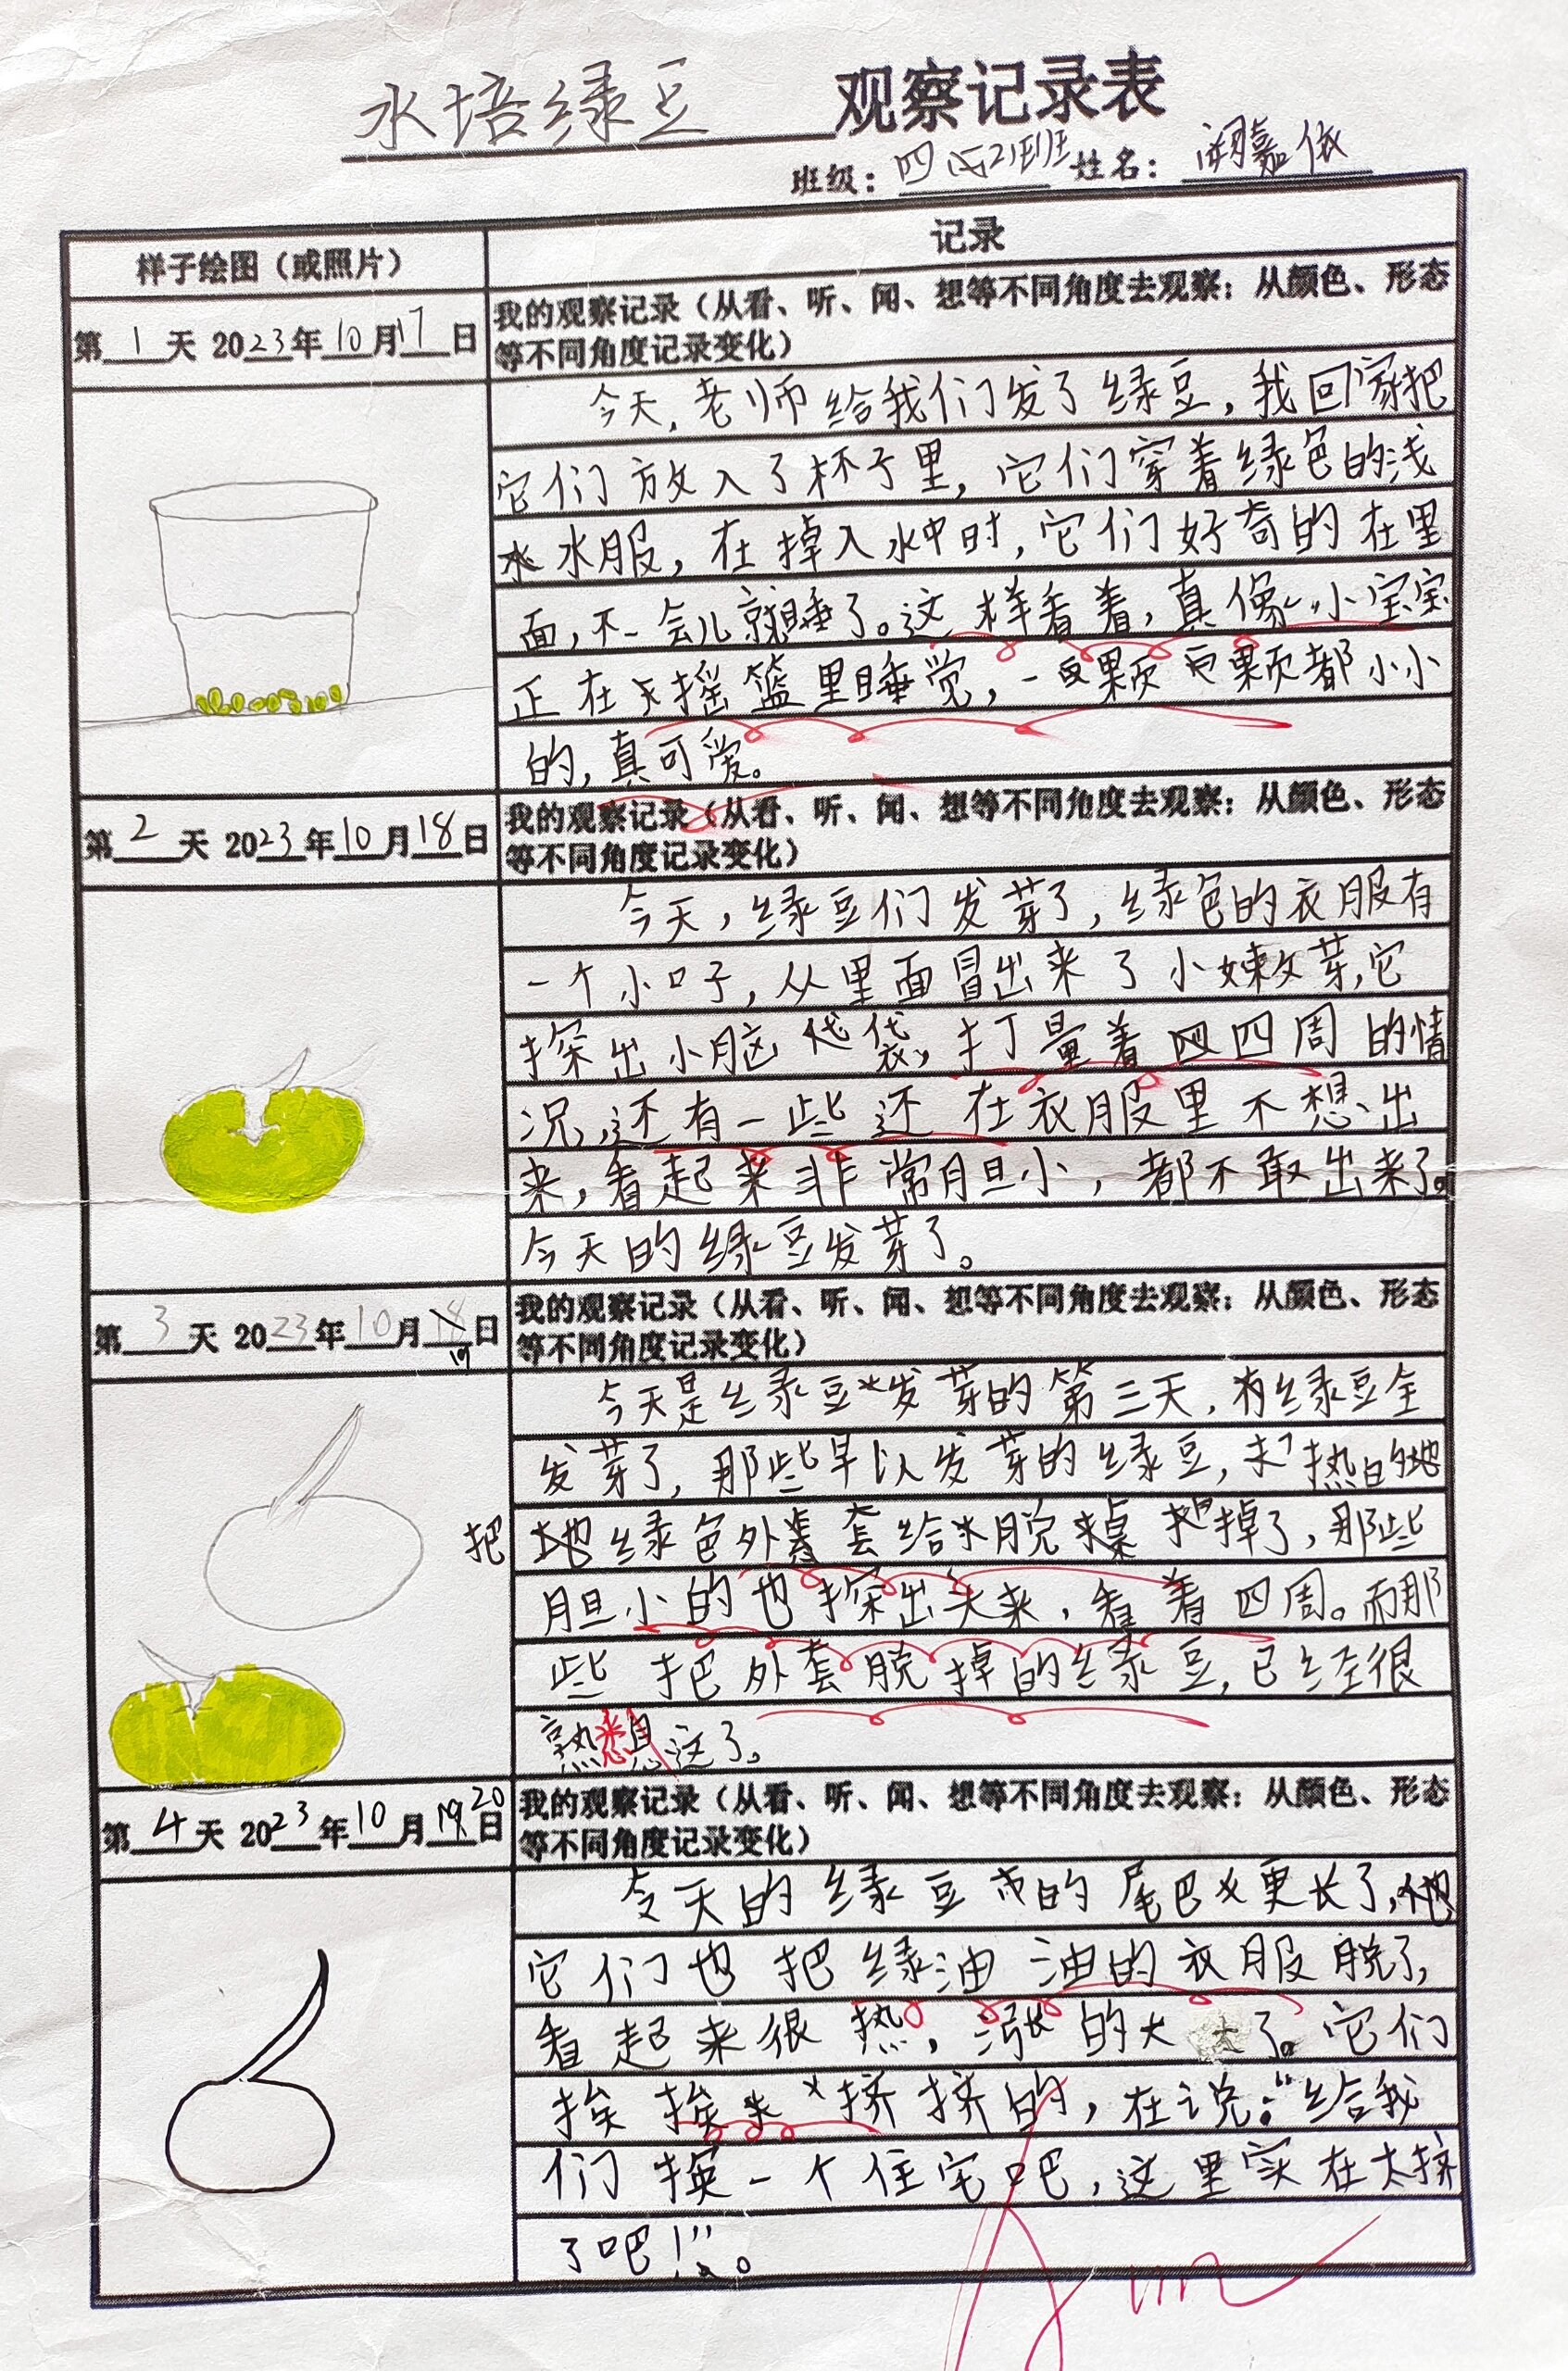 水培绿豆 观察记录表
班级：四(2)班 姓名：阙嘉依
样子绘图（或照片） 记录
第1天 2023年10月17日
我的观察记录（从看、听、闻、想等不同角度去观察；从颜色、形态
等不同角度记录变化）
今天，老师给我们发了绿豆，我回家把
它们放入了杯子里，它们穿着绿色的浅
水服，在掉入水中时，它们好奇的在里
面，不一会儿就睡了。这样看着，真像小宝宝
正在摇篮里睡觉，一颗颗都小小
的，真可爱。
第2天 2023年10月18日
我的观察记录（从看、听、闻、想等不同角度去观察；从颜色、形态
等不同角度记录变化）
今天，绿豆们发芽了，绿色的衣服有
一个小口子，从里面冒出来了小嫩芽，它
探出小脑袋，打量着四周的情
况，还有一些还在衣服里不想出
来，看起来非常胆小，都不敢出来了。
今天的绿豆发芽了。
第3天 2023年10月19日
我的观察记录（从看、听、闻、想等不同角度去观察；从颜色、形态
等不同角度记录变化）
今天是绿豆发芽的第三天，有绿豆全
发芽了，那些早以发芽的绿豆，热的地
把绿色外套给脱掉了，那些
胆小的也探出头来，看着四周。而那
些把外套脱掉的绿豆，已经很
熟悉这了。
第4天 2023年10月20日
我的观察记录（从看、听、闻、想等不同角度去观察；从颜色、形态
等不同角度记录变化）
今天的绿豆的尾巴更长了，
它们也把绿油油的衣服脱了，
看起来很热，涨的大大了。它们
挨挨挤挤的，在说：“给我
们换一个住宅吧，这里实在太挤
了吧！”。